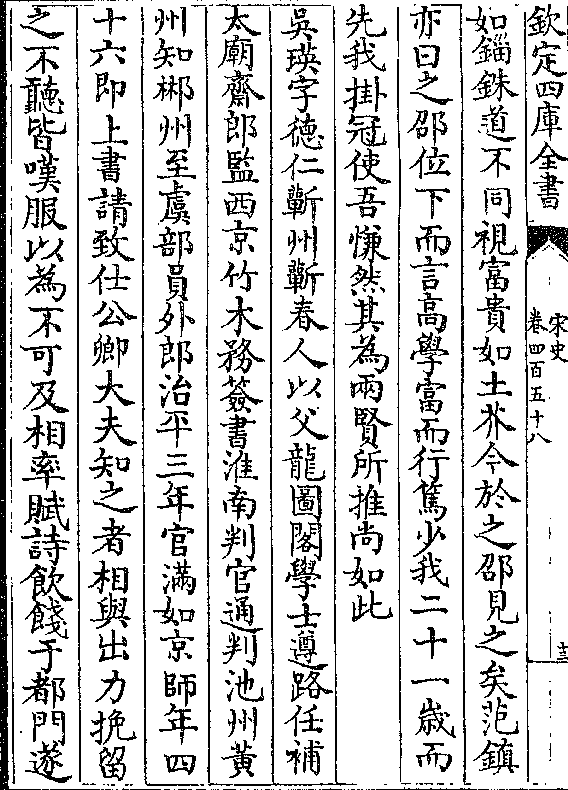 欽定四庫全書
宋史
卷四百五十八
十三
如錙銖道不同視富貴如土芥今於之邵見之矣范鎮
亦曰之邵位下而言高學富而行篤少我二十一歲而
先我掛冠使吾慊然其為兩賢所推尚如此
吳瑛字德仁蘄州蘄春人以父龍圖閣學士遵路任補
太廟齋郎監西京竹木務簽書淮南判官通判池州黃
州知郴州至虞部員外郎治平三年官滿如京師年四
十六即上書請致仕公卿大夫知之者相與出力挽留
之不聽皆嘆服以為不可及相率賦詩飲餞于都門遂